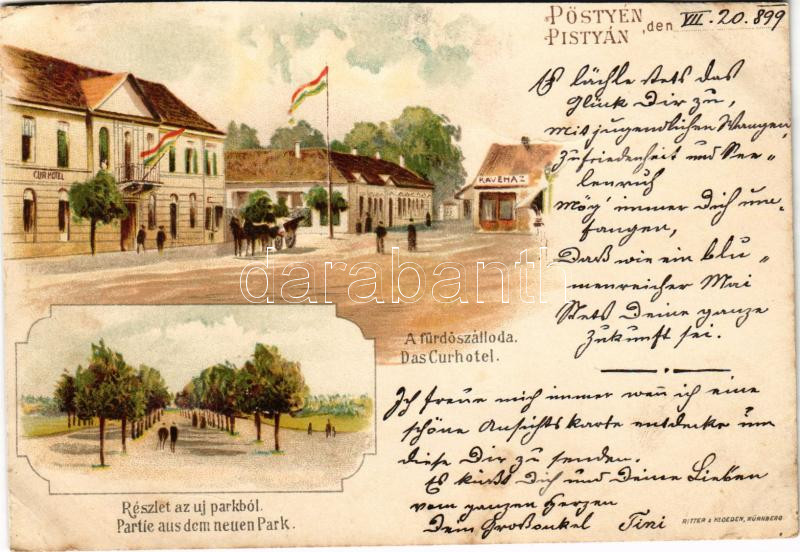 PÖSTYÉN
PISTYÁN, den VII. 20. 899
Es lächle stets das
Glück Dir zu,
Mit jugendlichen Wangen
Zufriedenheit und See=
lenruh
Mög' immer Dich um=
fangen,
Daß wie ein blu=
menreicher Mai
Stets Deine ganze
Zukunft sei.
CUR HOTEL
KÁVÉHÁZ
A fürdöszálloda.
Das Curhotel.
Ich freue mich immer wen̄ ich eine
schöne Ansichtskarte entdecke um
diese Dir zu senden.
Es küßt Dich und Deine Lieben
vom ganzen Herzen
Dein Großonkel Tini
Részlet az uj parkból.
Partie aus dem neuen Park.
RITTER & KLOEDEN, NÜRNBERG
darabanth